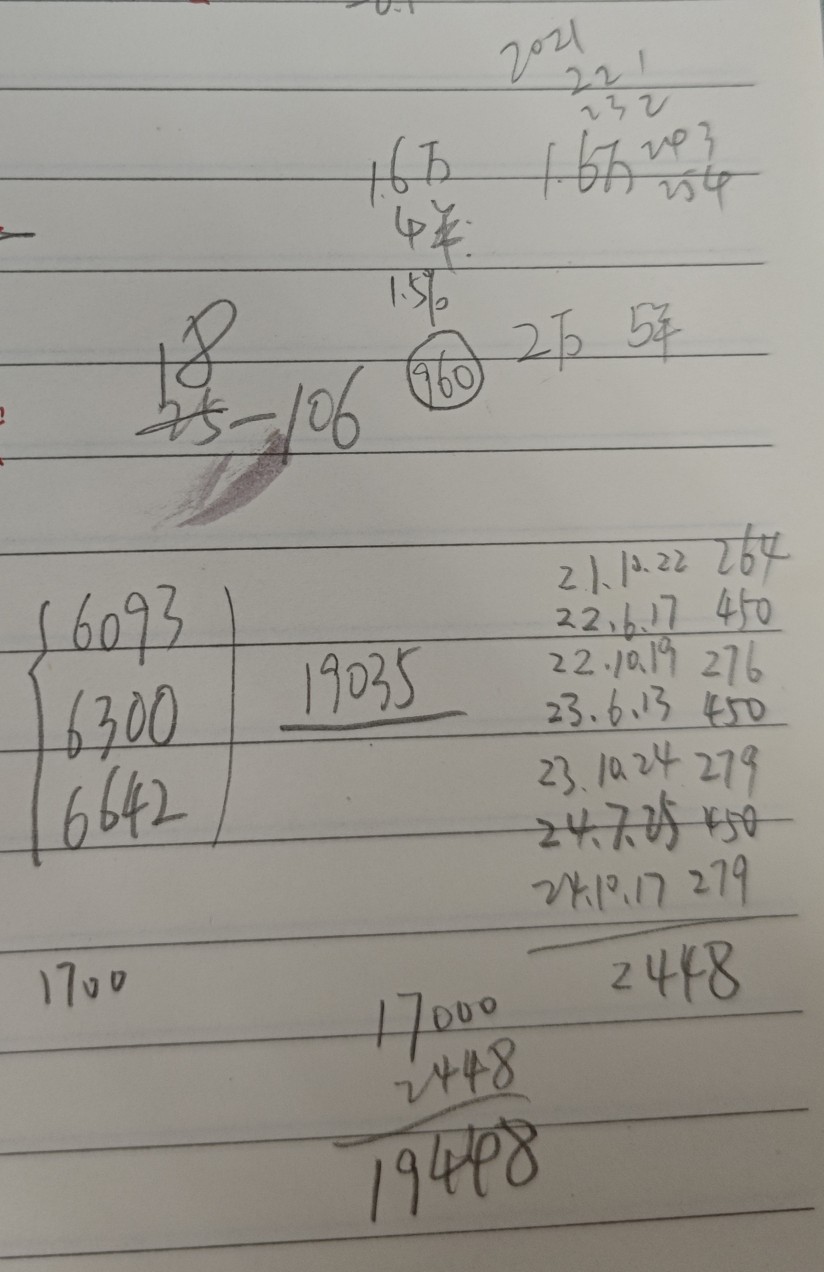 2021
22 1
23 2
1.6万
1.6万
24 3
25 4
4年
1.5%
960
2万 5年
18
25-106
6093
6300
6642
19035
21.10.22 264
22.6.17 450
22.10.19 276
23.6.13 450
23.10.24 279
24.7.25 450
24.10.17 279
2448
1700
17000
2448
19448